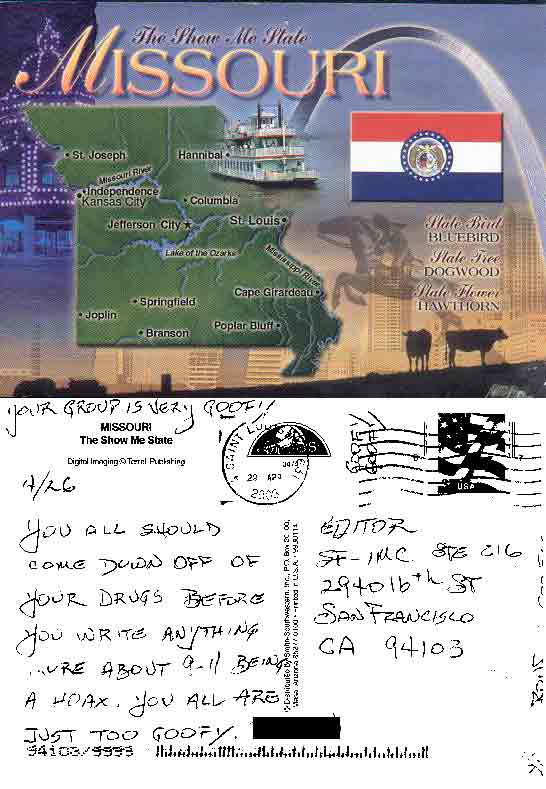 The Show Me State
MISSOURI
St. Joseph
Hannibal
Missouri River
Independence
Kansas City
Columbia
Jefferson City
St. Louis
Lake of the Ozarks
Mississippi River
Cape Girardeau
Springfield
Joplin
Poplar Bluff
Branson
State Bird
BLUEBIRD
State Tree
DOGWOOD
State Flower
HAWTHORN
YOUR GROUP IS VERY GOOFY!
MISSOURI
The Show Me State
Digital Imaging © Terrell Publishing
4/26
YOU ALL SHOULD
COME DOWN OFF OF
YOUR DRUGS BEFORE
YOU WRITE ANYTHING
ABOUT 9-11 BEING
A HOAX. YOU ALL ARE
JUST TOO GOOFY.
94103/9999
SAINT LOUIS
28 APR
2006
GOOFY
GOOFY
USA
EDITOR
SF-IMC STE 216
2940 16th ST
SAN FRANCISCO
CA 94103
Distributed by Smith-Southwestern, Inc., P.O. Box
Mesa, Arizona Printed in U.S.A.